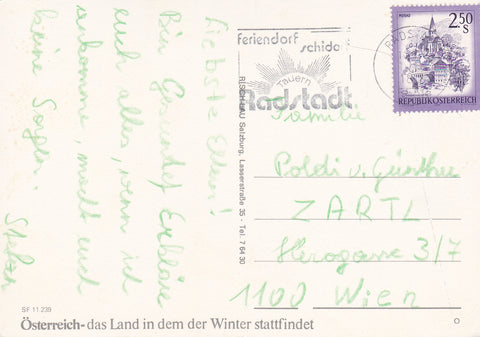 Liebste Eltern!
Bin Gesund! Erkläre
euch alles, wenn ich
ankomme, macht euch
keine Sorgen.
Stefan
feriendorf
schidorf
Tauern
Radstadt
2.50
S
REPUBLIK ÖSTERREICH
RADS
Familie
Poldi u. Günther
ZARTL
Herogasse 3/7
1100 Wien
Salzburg, Lasserstraße 35 - Tel. 7 64 30
SF 11.239
Österreich-das Land in dem der Winter stattfindet